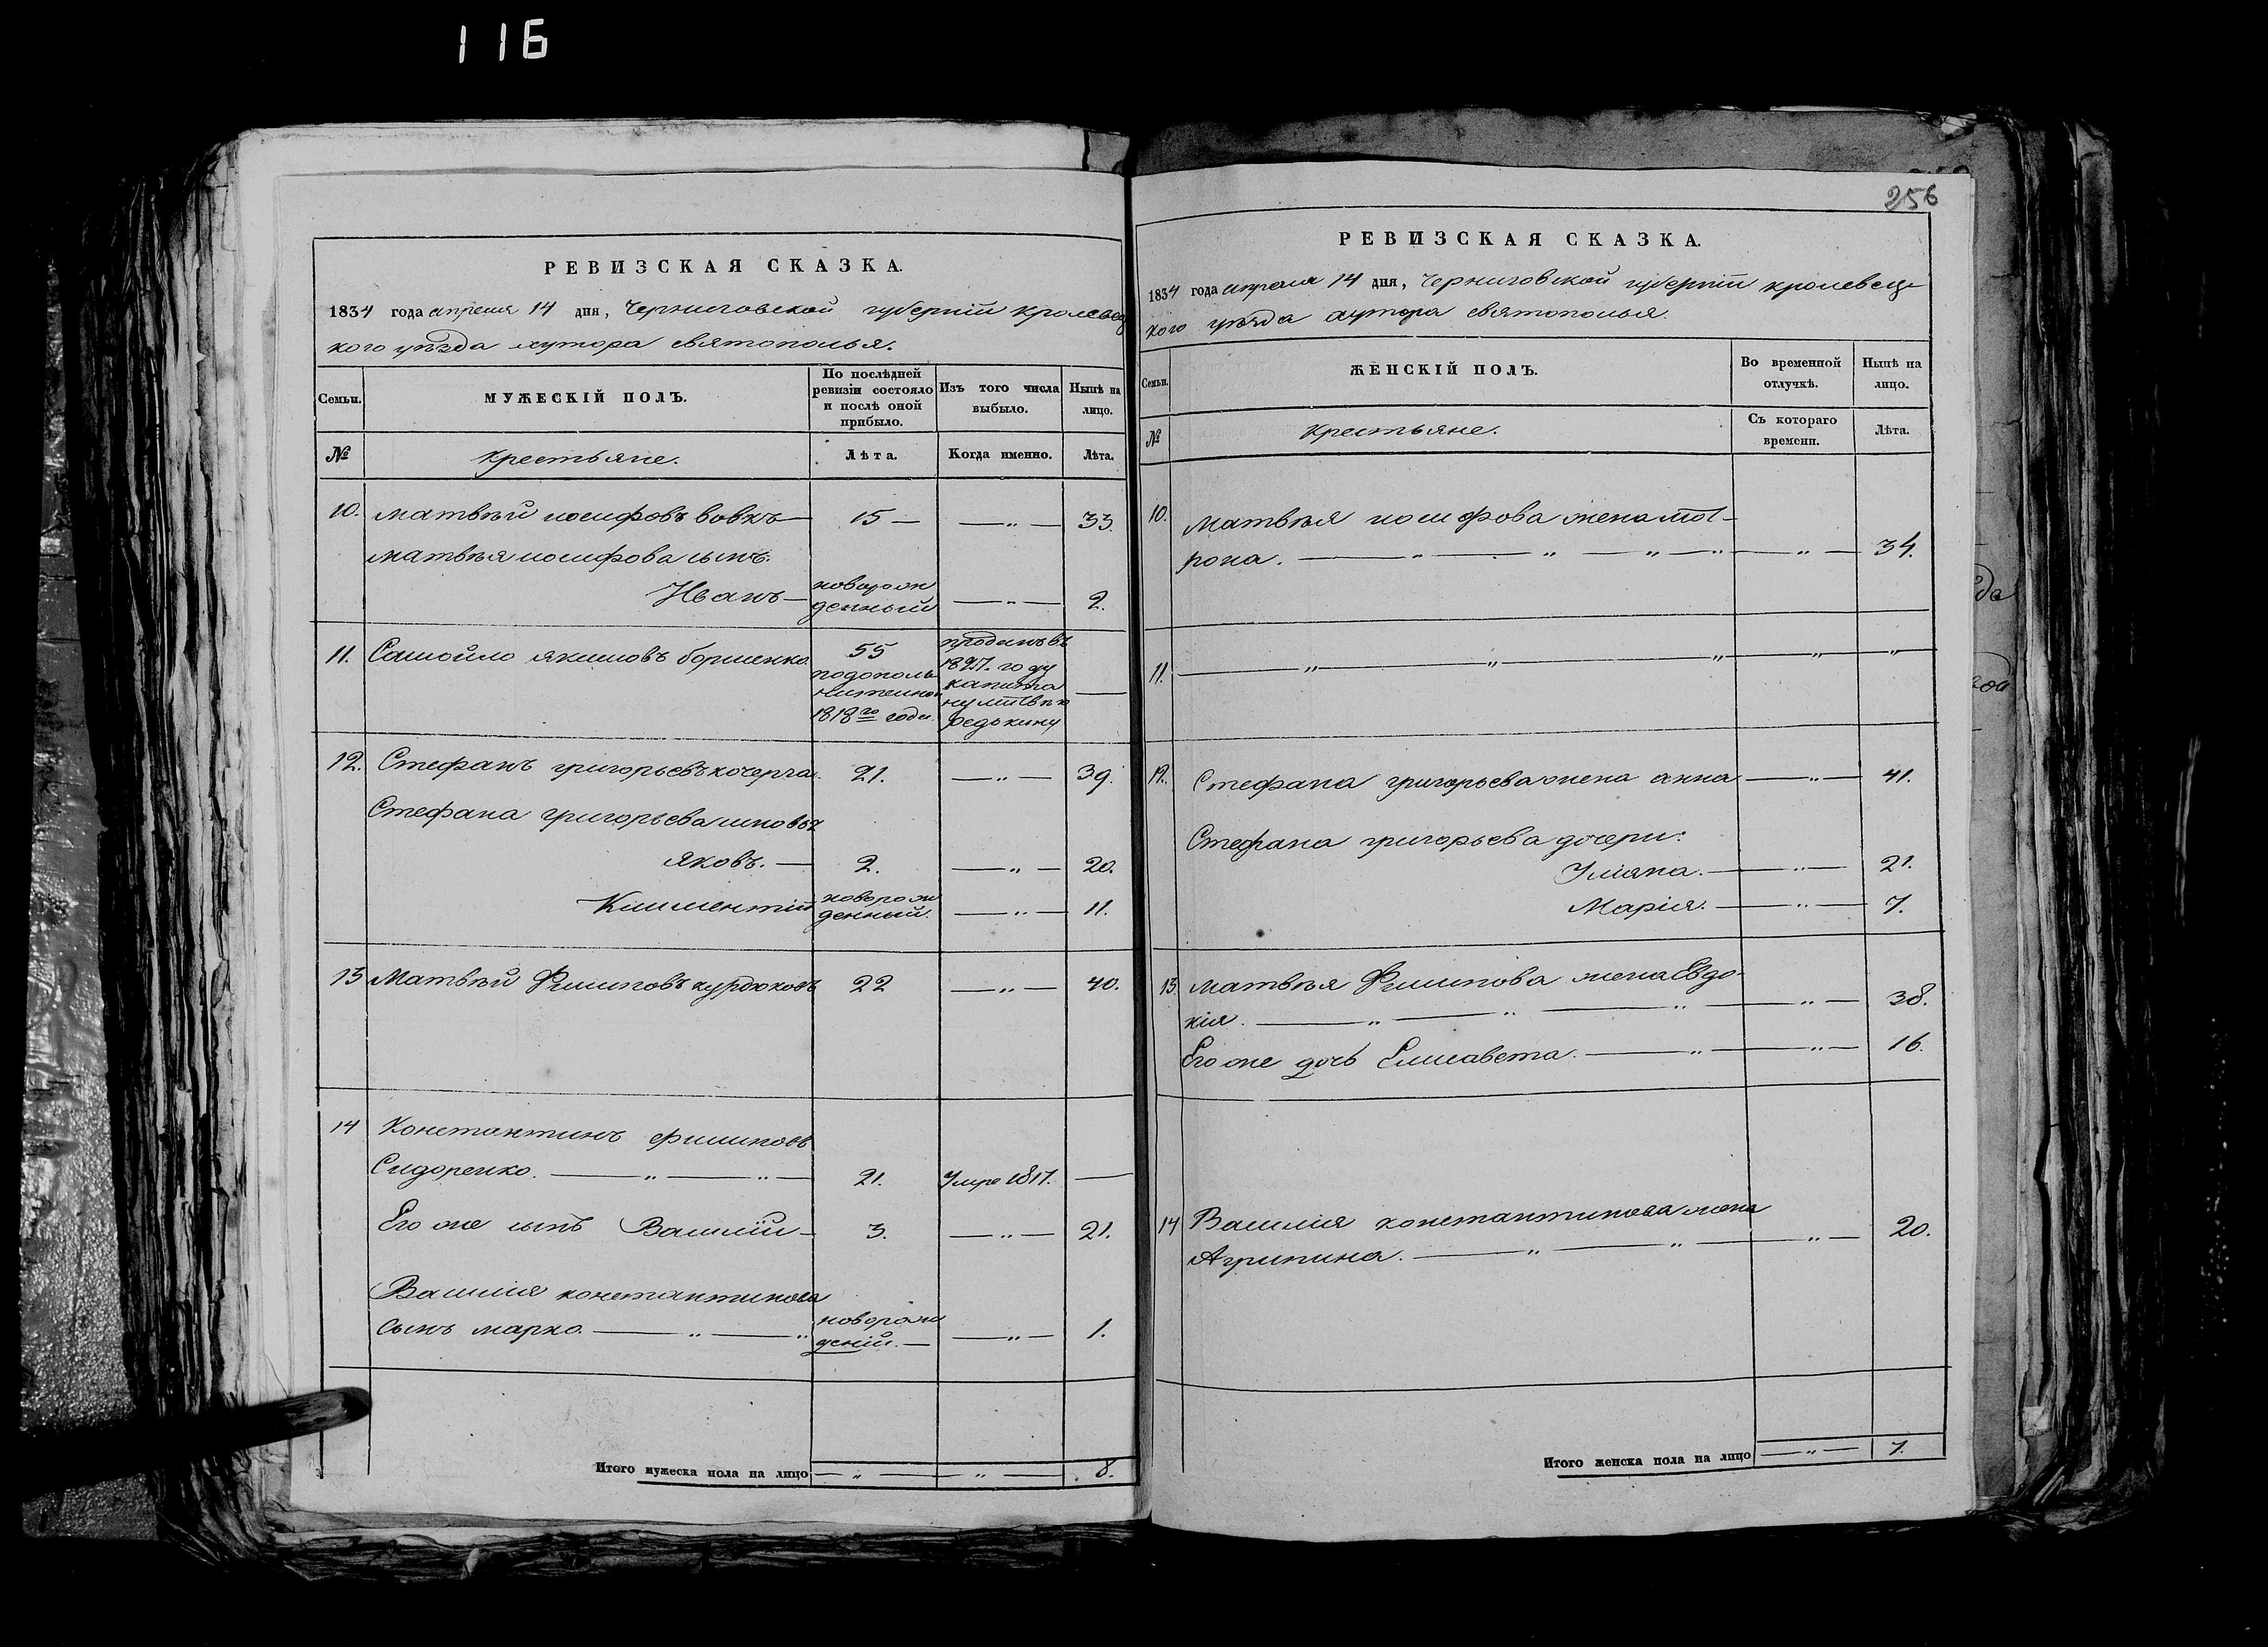 116
РЕВИЗСКАЯ СКАЗКА.
1834 года апреля 14 дня, Черниговской губернiи кролевец
кого уѣзда хутора святополья.
Семьи.
МУЖЕСКІЙ ПОЛЪ.
По послѣдней
ревизіи состояло
и послѣ оной
прибыло.
Изъ того числа
выбыло.
Нынѣ на
лицо.
№
крестьяне.
Лѣта.
Когда именно.
Лѣта.
10. матвѣй иосифовъ вовкъ — 15 — — „ — 33.
матвѣя иосифова сынъ:
Иванъ — новорож
денный — „ — 2.
11. Самойло якимовъ борщенко 55
1818го года.
проданъ въ
1827. году
капита
ну
редькину —
12. Стефанъ григорьевъ кочерга. 21. — „ — 39.
Стефана григорьева сыновья
яковъ. — 2. — „ — 20.
Климентій новорож
денный. — „ — 11.
13 Матвѣй Филиповъ курдюковъ 22 — „ — 40.
14 Константинъ филиповъ
Сидоренко. — „ — „ — 21. Умре 1817. —
Его же сынъ Василій — 3. — „ — 21.
Василія константинова
сынъ марко. — „ — „ новорож
деній. — — „ — 1.
Итого мужеска пола на лицо — „ — — „ — 8.
256
РЕВИЗСКАЯ СКАЗКА.
1834 года апреля 14 дня, Черниговской губернiи кролевец
кого уѣзда хутора святополья.
Семьи.
ЖЕНСКІЙ ПОЛЪ.
Во временной
отлучкѣ.
Нынѣ на
лицо.
№
крестьяне.
Съ котораго
времени.
Лѣта.
10. Матвѣя иосифова жена мот-
рона. — „ — „ — „ — „ — „ — 34.
11. — „ — „ — „ — „ — „
12. Стефана григорьева жена анна — „ — 41.
Стефана григорьева дочери:
Уліяна. — „ — 21.
Марія. — „ — 7.
13. матвѣя Филипова жена Евдо-
кія. — „ — „ — „ — „ — 38.
Его же дочь Елисавета. — „ — „ — 16.
14 Василія константинова жена
Агрипина. — „ — „ — „ — 20.
Итого женска пола на лицо — „ — 7.